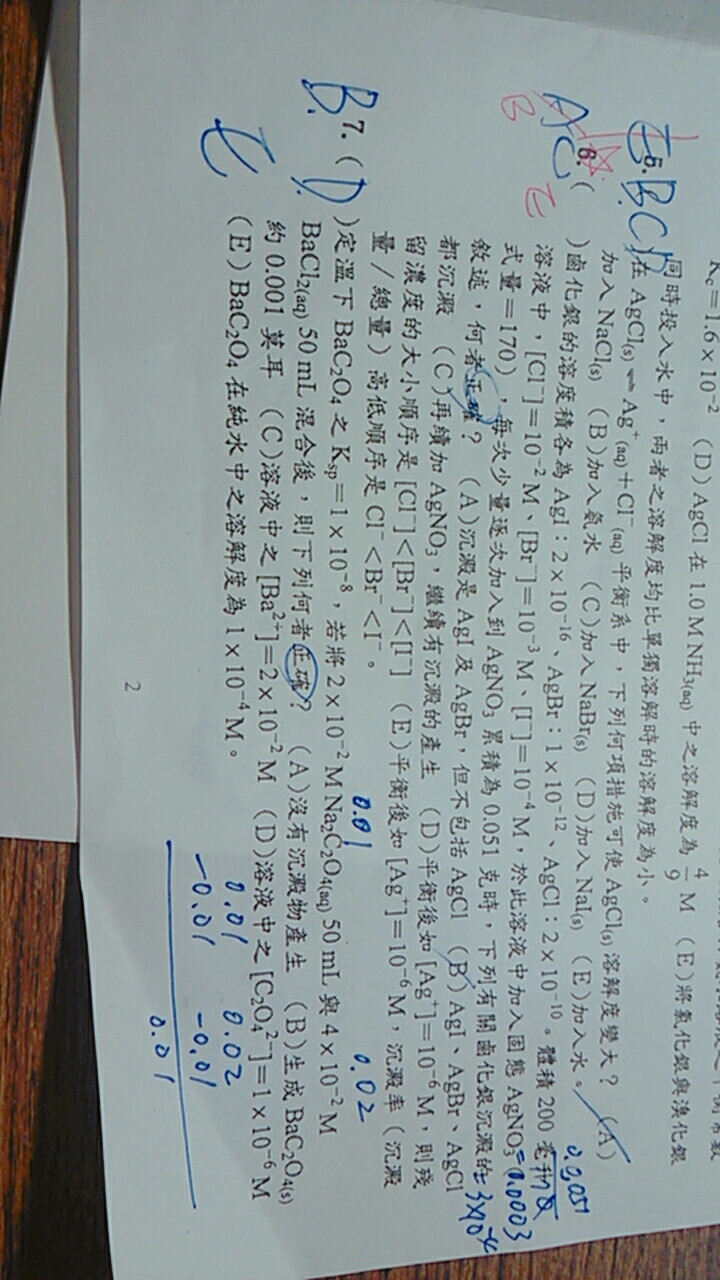 Kc＝1.6×10⁻² (D) AgCl 在 1.0 M NH₃(aq) 中之溶解度為 4/9 M (E)將氯化銀與溴化銀
同時投入水中，兩者之溶解度均比單獨溶解時的溶解度為小。
BCD
5. 在 AgCl(s) ⇌ Ag⁺(aq)＋Cl⁻(aq) 平衡系中，下列何項措施可使 AgCl(s) 溶解度變大？ (A)
加入 NaCl(s) (B)加入氨水 (C)加入 NaBr(s) (D)加入 NaI(s) (E)加入水。
B
E
6. ( )鹵化銀的溶度積各為 AgI：2×10⁻¹⁶、AgBr：1×10⁻¹²、AgCl：2×10⁻¹⁰。體積 200 毫升
溶液中，[Cl⁻]＝10⁻² M、[Br⁻]＝10⁻³ M、[I⁻]＝10⁻⁴ M，於此溶液中加入固態 AgNO₃
0.051
0.0003
=3×10⁻⁴
式量＝170)，每次少量逐次加入到 AgNO₃ 累積為 0.051 克時，下列有關鹵化銀沉澱的
敘述，何者正確？ (A)沉澱是 AgI 及 AgBr，但不包括 AgCl (B) AgI、AgBr、AgCl
都沉澱 (C)再續加 AgNO₃，繼續有沉澱的產生 (D)平衡後如 [Ag⁺]＝10⁻⁶ M，則殘
留濃度的大小順序是 [Cl⁻]＜[Br⁻]＜[I⁻] (E)平衡後如 [Ag⁺]＝10⁻⁶ M，沉澱率 (沉澱
量／總量) 高低順序是 Cl⁻＜Br⁻＜I⁻。
B.
D.
E
7. ( )定溫下 BaC₂O₄ 之 Ksp＝1×10⁻⁸，若將 2×10⁻² M Na₂C₂O₄(aq) 50 mL 與 4×10⁻² M
0.01
0.02
BaCl₂(aq) 50 mL 混合後，則下列何者正確？ (A)沒有沉澱物產生 (B)生成 BaC₂O₄(s)
約 0.001 莫耳 (C)溶液中之 [Ba²⁺]＝2×10⁻² M (D)溶液中之 [C₂O₄²⁻]＝1×10⁻⁶ M
(E) BaC₂O₄ 在純水中之溶解度為 1×10⁻⁴ M。
0.01 0.02
−0.01 −0.01
0.01
2